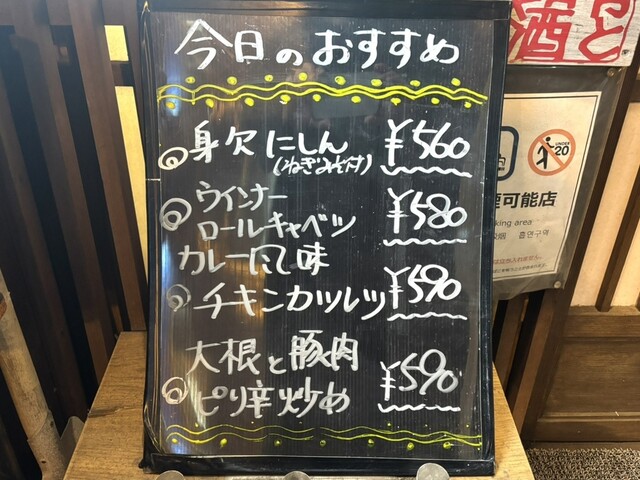 今日のおすすめ
身欠にしん ¥560
(ねぎみそ付)
ウインナー
ロールキャベツ ¥580
カレー風味
チキンカツレツ ¥590
大根と豚肉
ピリ辛炒め ¥590
酒
UNDER
20
可能店
king area
흡연구역